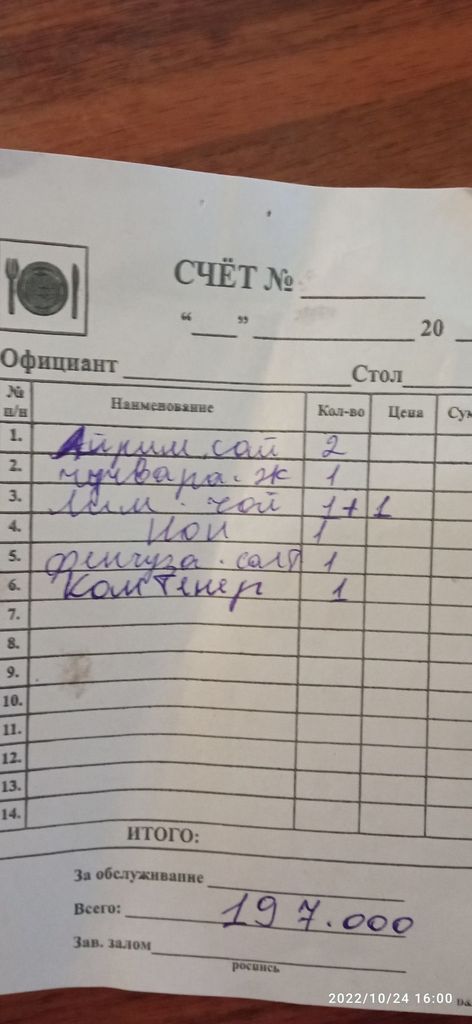 СЧЁТ №
“ ” 20
Официант Стол
№ п/н Наименование Кол-во Цена Сум
1. Айрим сай 2
2. чучвара. ж 1
3. Лим. чой 1+1
4. Нон 1
5. фенчуза. салт 1
6. Контенер 1
7.
8.
9.
10.
11.
12.
13.
14.
ИТОГО:
За обслуживание
Всего: 197.000
Зав. залом
роспись
2022/10/24 16:00